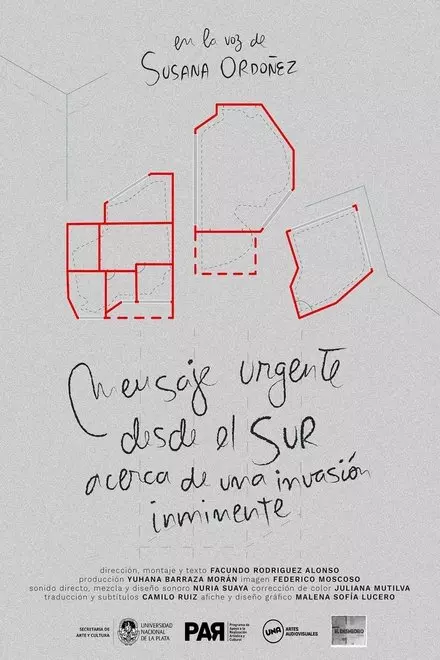 en la voz de
SUSANA ORDOÑEZ
Mensaje urgente
desde el SUR
acerca de una invasión
inminente.
dirección, montaje y texto FACUNDO RODRIGUEZ ALONSO
producción YUHANA BARRAZA MORÁN imagen FEDERICO MOSCOSO
sonido directo, mezcla y diseño sonoro NURIA SUAYA corrección de color JULIANA MUTILVA
traducción y subtítulos CAMILO RUIZ afiche y diseño gráfico MALENA SOFÍA LUCERO
SECRETARÍA DE
ARTE Y CULTURA
UNIVERSIDAD
NACIONAL
DE LA PLATA
PAR
Programa de
Apoyo a la
Realización
Artística y
Cultural
UNA
ARTES
AUDIOVISUALES